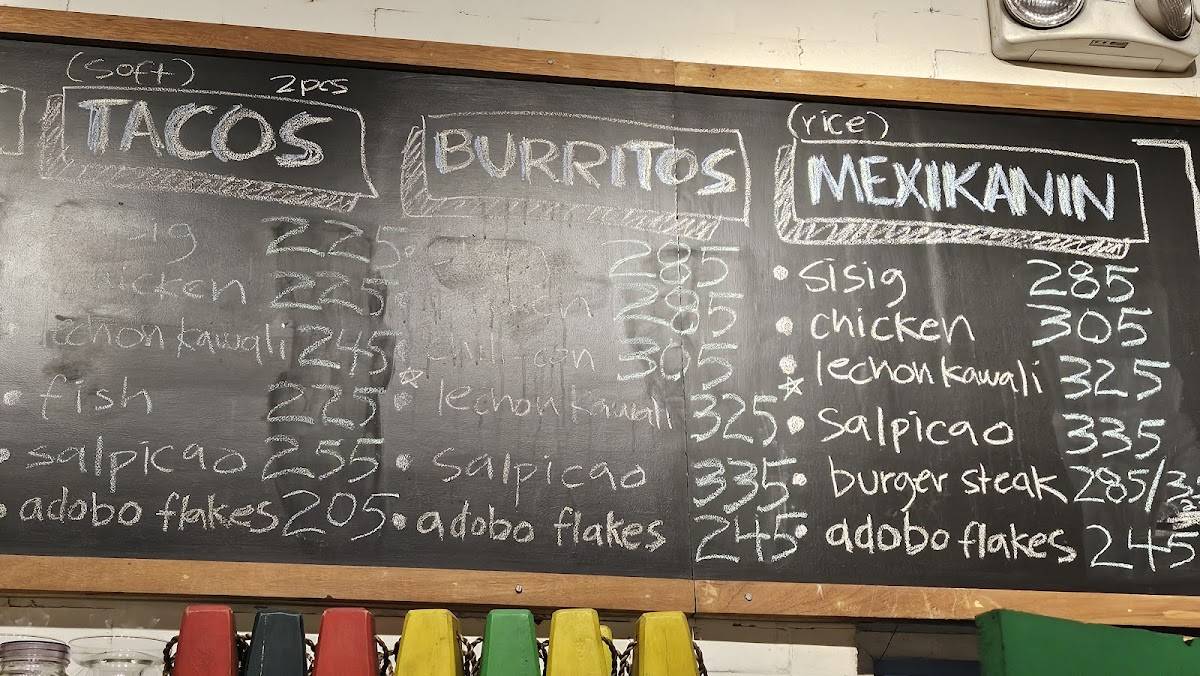 (soft)
2pcs
TACOS
225
chicken 225
lechon kawali 245
• fish 225
• salpicao 255
• adobo flakes 205
BURRITOS
285
285
305
lechon kawali 325
• salpicao 335
• adobo flakes 245
(rice)
MEXIKANIN
• sisig 285
• chicken 305
• lechon kawali 325
• salpicao 335
• burger steak 285/
• adobo flakes 245